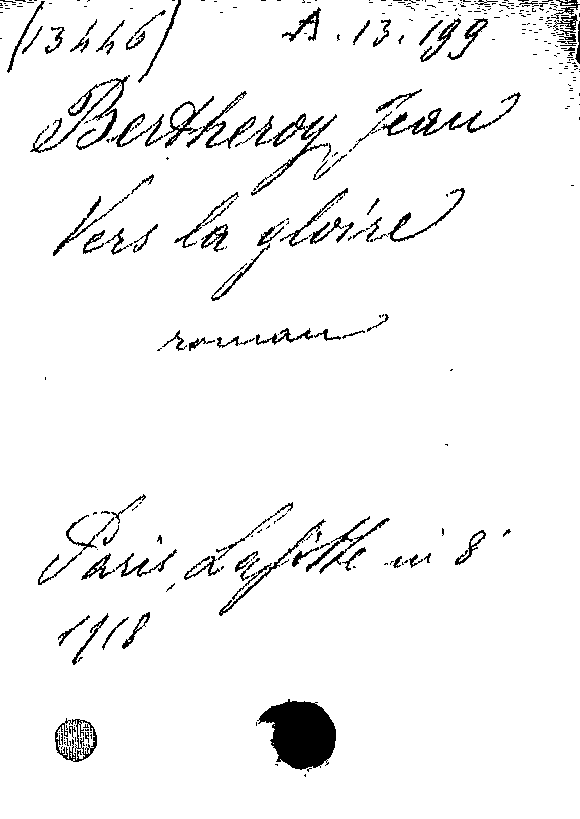 (13446) A.13.199
Bertheroy, Jean
Vers la gloire
roman
Paris, Lafitte in 8°
1918